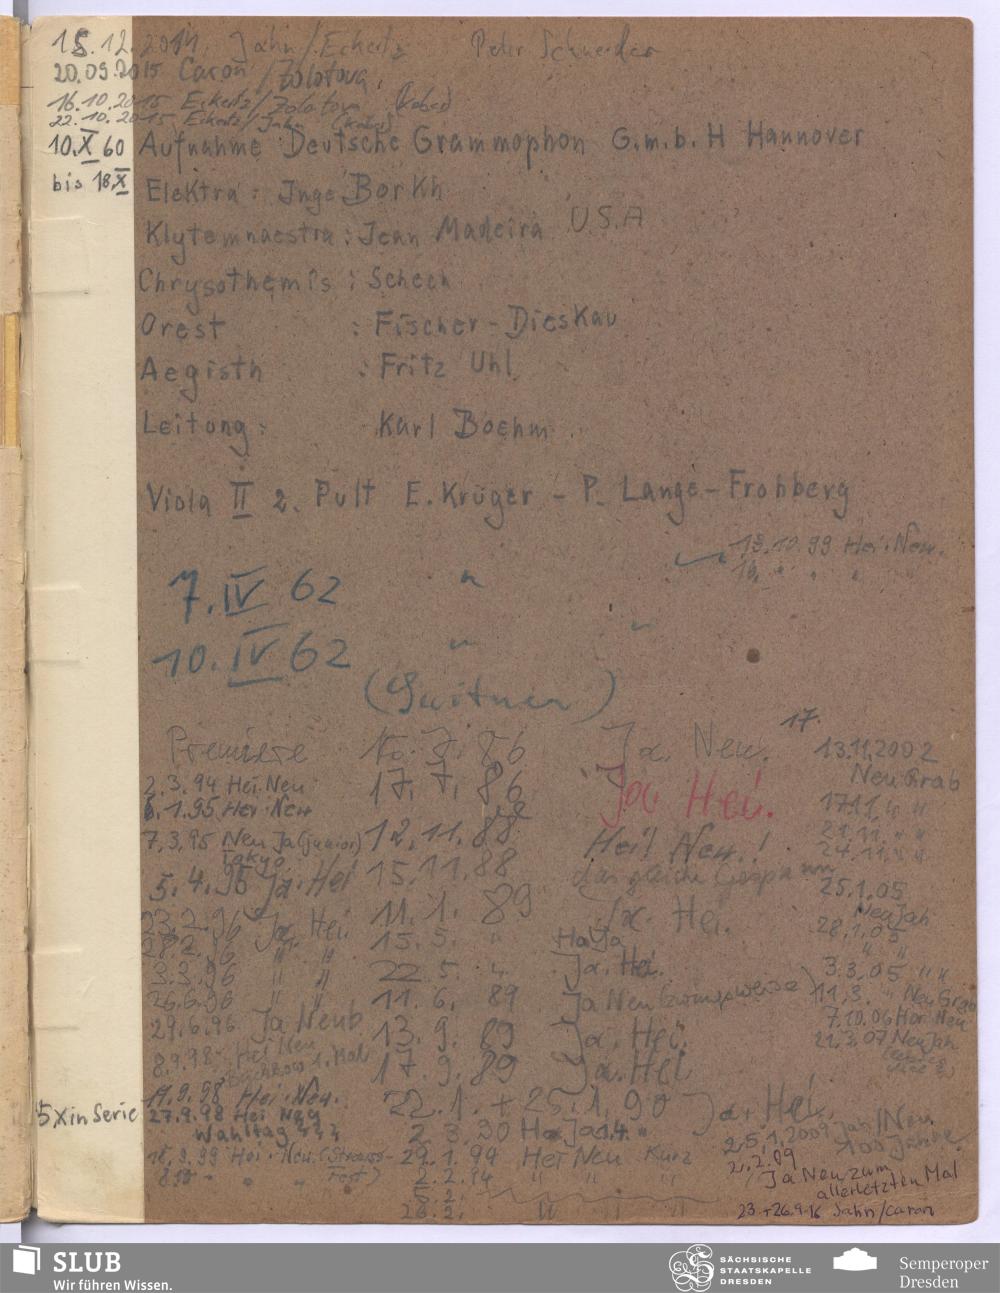 18.12.2014 Jahn/Eckertz Peter Schneider
20.09.2015 Caron/Zolotova
16.10.2015 Eckertz/Zolotova
22.10.2015 Eckertz/Jahn
10.X 60 Aufnahme Deutsche Grammophon G.m.b.H Hannover
bis 18.X
Elektra: Inge Borkh
Klytemnaestra: Jean Madeira U.S.A
Chrysothemis: Schech
Orest : Fischer-Dieskau
Aegisth : Fritz Uhl
Leitung: Karl Boehm
Viola II 2. Pult E. Krüger - P. Lange-Frohberg
13.10.99 Hei. Neu.
16. " " " "
7.IV 62 "
10.IV 62 " "
(Suitner)
Premiere 7. 86 Ja. Neu.
17.
13.11.2002
Neu Grab
2.3.94 Hei Neu
17.7.86 Ja Hei.
1.95 Hei. Neu
17.11. " "
7.3.95 Neu Ja (junior)
Tokyo
12.11.88 Heil Neu.!
21.11. " "
24.11. " "
5.4.95 Ja. Hei
15.11.88 das gleiche Gespann
25.1.05
Neu Jah
23.2.96 Ja. Hei.
11.1. 89 Ja. Hei.
28.1.05
" "
28.2.96 " "
15.5. " Ha Ja
3.3.96 " "
22.5. " Ja. Hei.
3.3.05 " "
26.6.96 " "
11.6. 89 Ja Neu (zwangsweise)
11.3. " Neu Grab
7.10.06 Hor Neu
29.6.96 Ja Neub
13.9.89 Ja. Hei.
21.3.07 Neu Jah
8.9.98 Hei Neu
1. Mal
17.9.89 Ja. Hei
5x in Serie
19.9.98 Hei. Neu.
22.1. + 25.1.90 Ja. Hei.
27.9.98 Hei Neu
Wahltag
2.3.90 Ha Ja
25.1.2009 Jah/Neu
100 Jahre
18.9.99 Hei. Neu. (Strauss-
Fest)
29.1.99 Hei Neu Kurz
2.2.94
5.2.
26.2. " " "
2.2.09
Ja Neu zum
allerletzten Mal
23.+26.9.16 Jahn/Caron
SLUB
Wir führen Wissen.
SÄCHSISCHE
STAATSKAPELLE
DRESDEN
Semperoper
Dresden